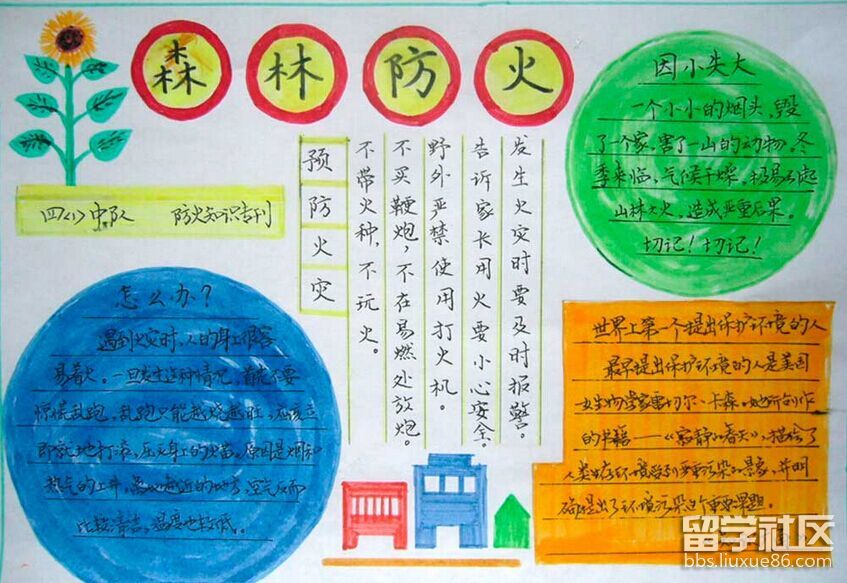 森林防火
四(1)中队 防火知识专刊
预防火灾
不带火种,不玩火。
不买鞭炮,不在易燃处放炮。
野外严禁使用打火机。
告诉家长用火要小心安全。
发生火灾时要及时报警。
因小失大
一个小小的烟头,毁
了一个家,害了一山的动物,冬
季来临,气候干燥,极易引起
山林大火,造成严重后果。
切记!切记!
怎么办?
遇到火灾时,人的身上很容
易着火。一旦发生这种情况,首先不要
惊慌乱跑,乱跑只能越烧越旺,应该立
即就地打滚,压灭身上的火苗。原因是烟和
热气的上升,离地近的地方,空气反而
比较清洁,温度也较低。
世界上第一个提出保护环境的人
最早提出保护环境的人是美国
女生物学家雷切尔·卡森。她所创作
的书籍——《寂静的春天》,描绘了
人类生存环境受到严重污染的景象,并明
确提出了环境污染这个重要课题。
留学社区
bbs.liuxue86.com